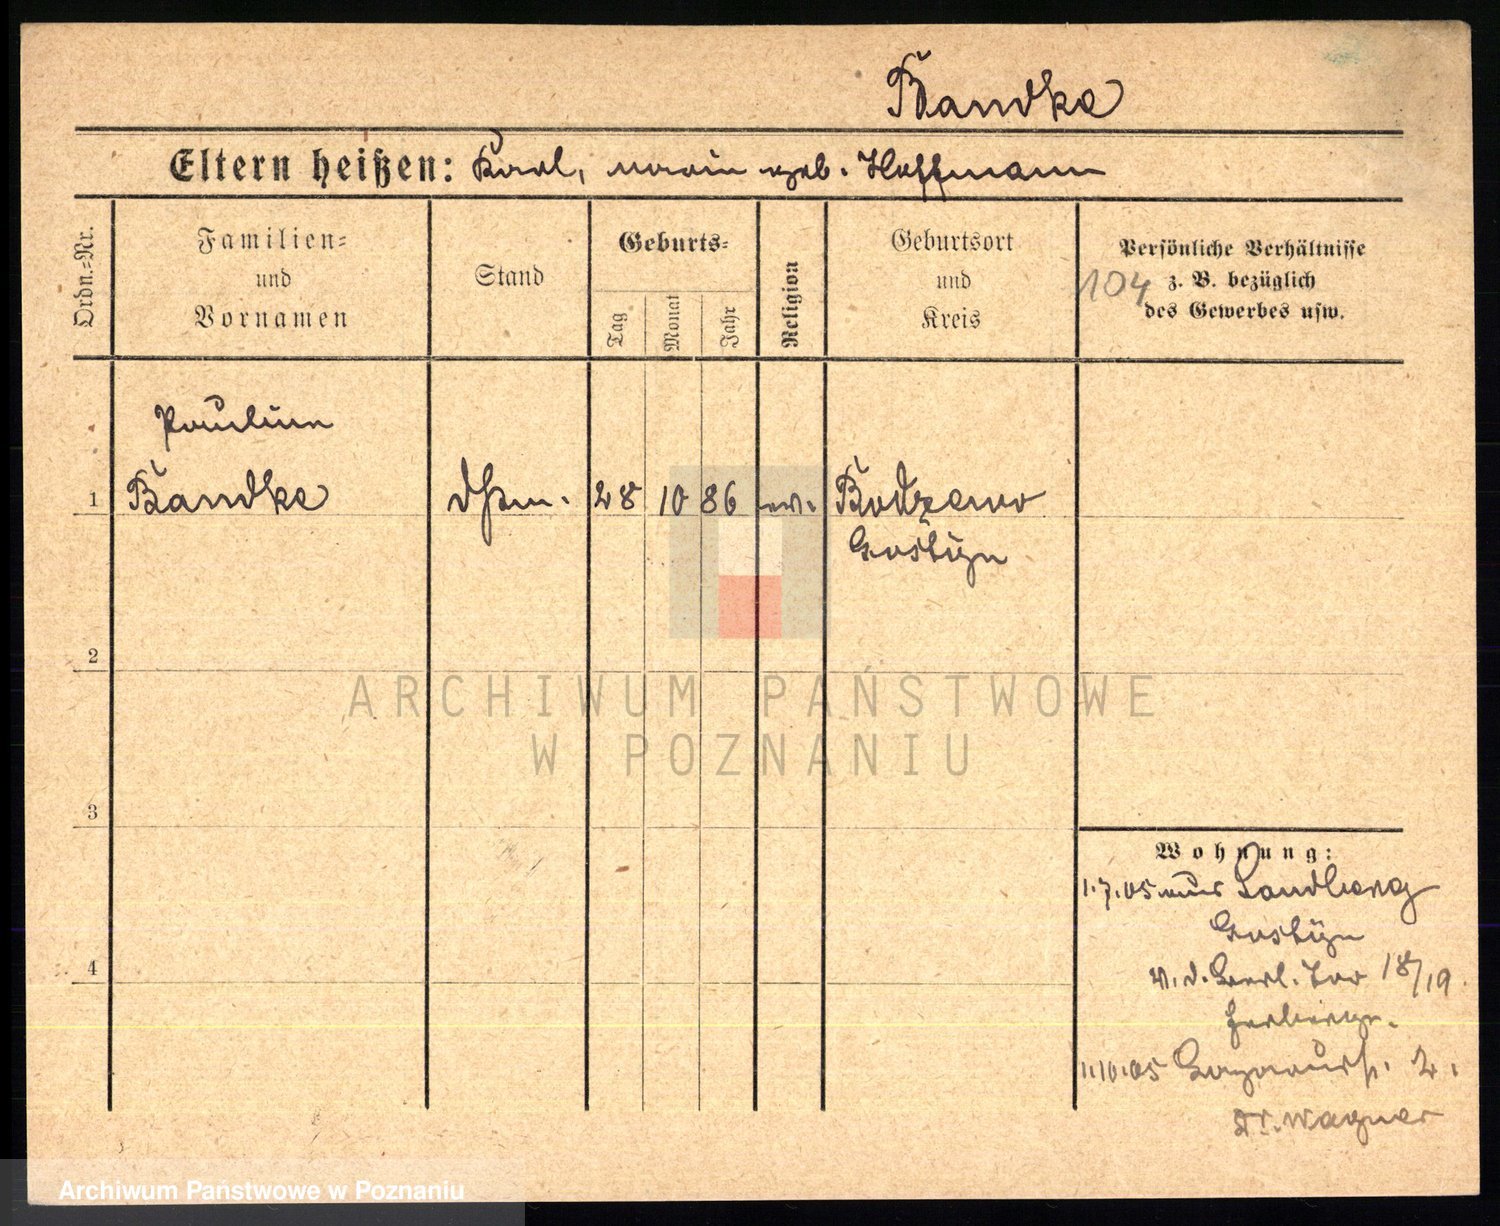 Bandke
Eltern heißen: Karl, Maria geb. Hoffmann
Ordn.=Nr.
Familien=
und
Vornamen
Stand
Geburts=
Tag
Monat
Jahr
Religion
Geburtsort
und
Kreis
Persönliche Verhältnisse
z. B. bezüglich
des Gewerbes usw.
104
Pauline
1 Bandke 28 10 86 ev. Bodzewo
Gostyn
2
3
4
Wohnung:
1.7.05 aus Sandberg
Gostyn
v. d. Berl. Tor 18/19.
Herberge.
1.10.05 2.
Dr. Wagner
ARCHIWUM PAŃSTWOWE
W POZNANIU
Archiwum Państwowe w Poznaniu